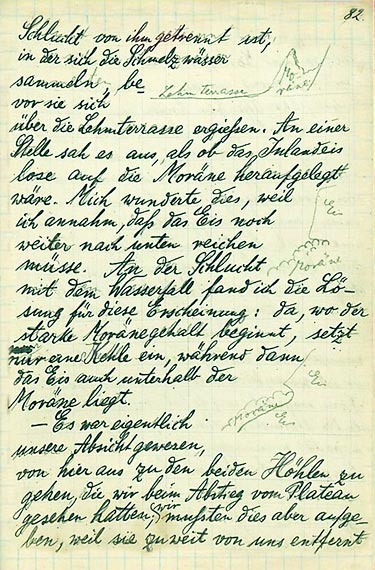 82.
Schlucht von ihm getrennt ist,
in der sich die Schmelzwässer
sammeln be-
vor sie sich
Lehmterrasse
Moräne
über die Lehmterrasse ergießen. An einer
Stelle sah es aus, als ob das Inlandeis
lose auf die Moräne heraufgelegt
wäre. Mich wunderte dies, weil
ich annahm, daß das Eis noch
weiter nach unten reichen
Eis
müsse. An der Schlucht
Moräne
mit dem Wasserfall fand ich die Lö-
sung für diese Erscheinung: da, wo der
starke Moränegehalt beginnt, setzt
nur eine Kehle ein, während dann
das Eis auch unterhalb der
Eis
Moräne liegt.
Moräne
Eis
– Es war eigentlich
unsere Absicht gewesen,
von hier aus zu den beiden Höhlen zu
gehen, die wir beim Abstieg vom Plateau
gesehen hatten, wir mußten dies aber aufge-
ben, weil sie zu weit von uns entfernt